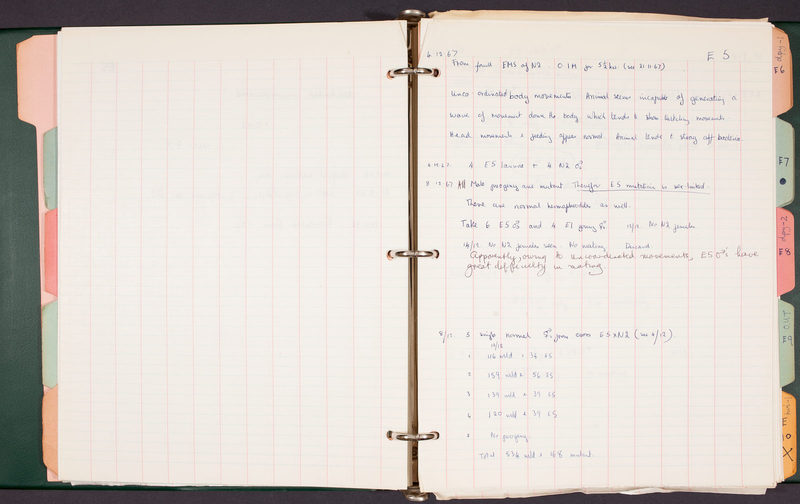 E 5
6.12.67
From fourth EMS of N2. 0.1M for 5½ hrs. (see 21.11.67)
Unco ordinated body movements. Animal seems incapable of generating a
wave of movement down the body which tends to show twitching movements.
Head movements & feeding appear normal. Animal tends to stray off bacteria.
6.12.67. 4 E5 larvae + 4 N2 ♂
8.12.67 All Male progeny are mutant Therefore E5 mutation is sex-linked.
There are normal hermaphrodites as well.
Take 6 E5 ♂ and 4 E1 young 12/12 No N2 females
14/12. No N2 females seen. No mating. Discard
Apparently, owing to uncoordinated movements, E5 ♂'s have
great difficulty in mating.
8/12 5 single normal from cross E5xN2 (see 6/12).
12/12
1 116 wild + 34 E5
2 159 wild + 56 E5
3 139 wild + 39 E5
4 120 wild + 39 E5
5 No progeny.
Total 534 wild + 168 mutant.
dpy-1
E6
E7
dpy-2
E8
OUT
E9
E
10
X